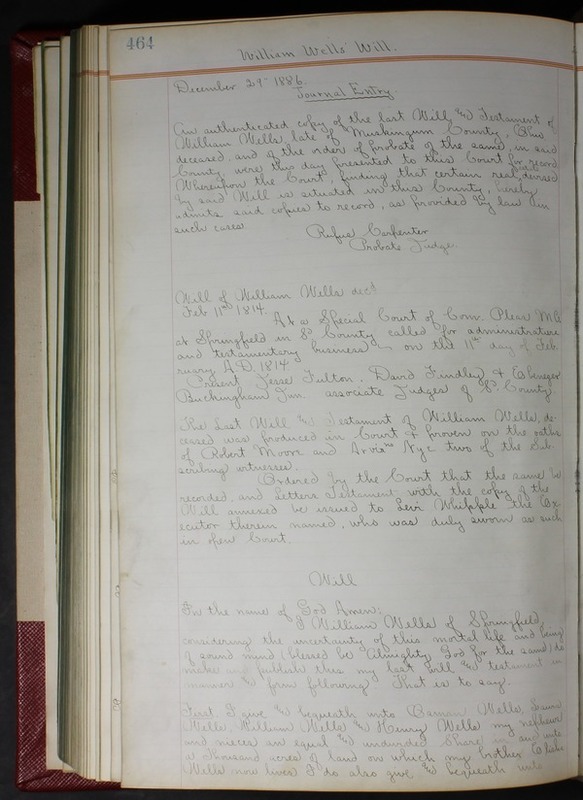 464
William Wells' Will.
December 29th 1886.
Journal Entry.
An authenticated copy of the last Will & Testament of
William Wells, late of Muskingum County, Ohio
deceased, and of the order of probate of the same, in said
County, were this day presented to this Court for record.
Whereupon the Court, finding that certain real devised
by said Will is situated in this County, hereby
admits said copies to record, as provided by law in
such cases
Rufus Carpenter
Probate Judge.
Will of William Wells decd
Feb 11th 1814.
At a Special Court of Com. Pleas M C
at Springfield in Sd County called for administration
and testamentary business on the 11th day of Feb
ruary A.D. 1814
Present, Jesse Fulton, David Findley & Ebenezer
Buckingham Jun. associate Judges of Sd County
The Last Will & Testament of William Wells, de-
ceased was produced in Court & proven on the oaths
of Robert Moore and Nye two of the sub
scribing witnesses.
Ordered by the Court that the same be
recorded, and Letters Testament with the copy of the
Will annexed be issued to Levi Whipple the Ex-
ecutor therein named, who was duly sworn as such
in open Court.
Will
In the name of God Amen:
I William Wells of Springfield,
considering the uncertainty of this mortal life and being
of sound mind (blessed be Almighty God for the same) do
make and publish this my last will & testament in
manner & form following That is to say.
First. I give & bequeath unto Wells,
Wells, William Wells & Henry Wells my nephews
and nieces an equal & undivided Share in and unto
a thousand acres of land on which my brother
Wells now lives I do also give & bequeath unto